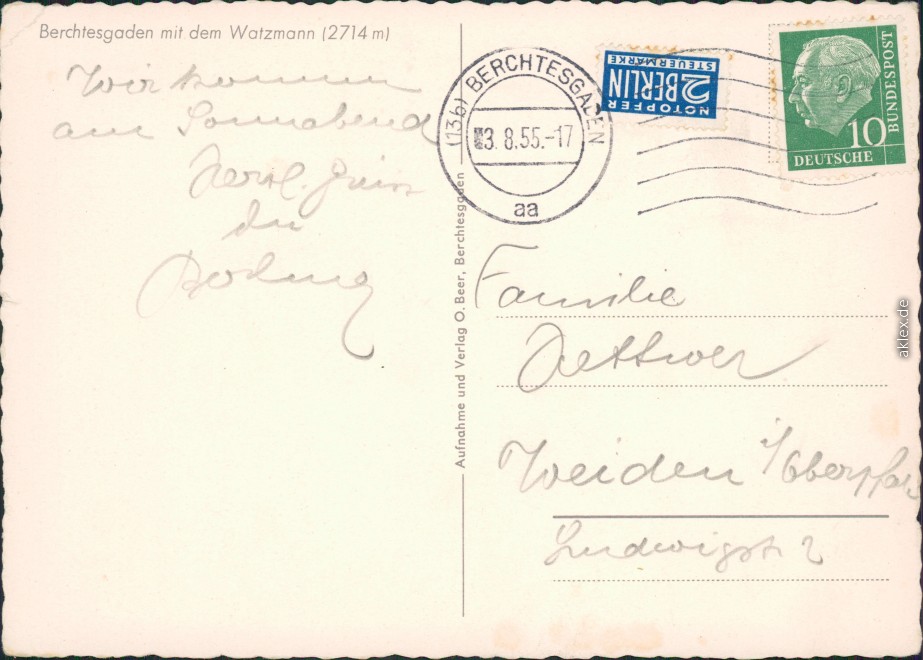 Berchtesgaden mit dem Watzmann (2714 m)
Wir kommen
am Sonnabend
Herzl.
Aufnahme und Verlag O. Beer, Berchtesgaden
(13b) BERCHTESGADEN
3.8.55.-17
aa
NOTOPFER
2 BERLIN
STEUERMARKE
10
DEUTSCHE
BUNDESPOST
Familie
Weiden i/Oberpfalz
Ludwigstr 2
aklex.de